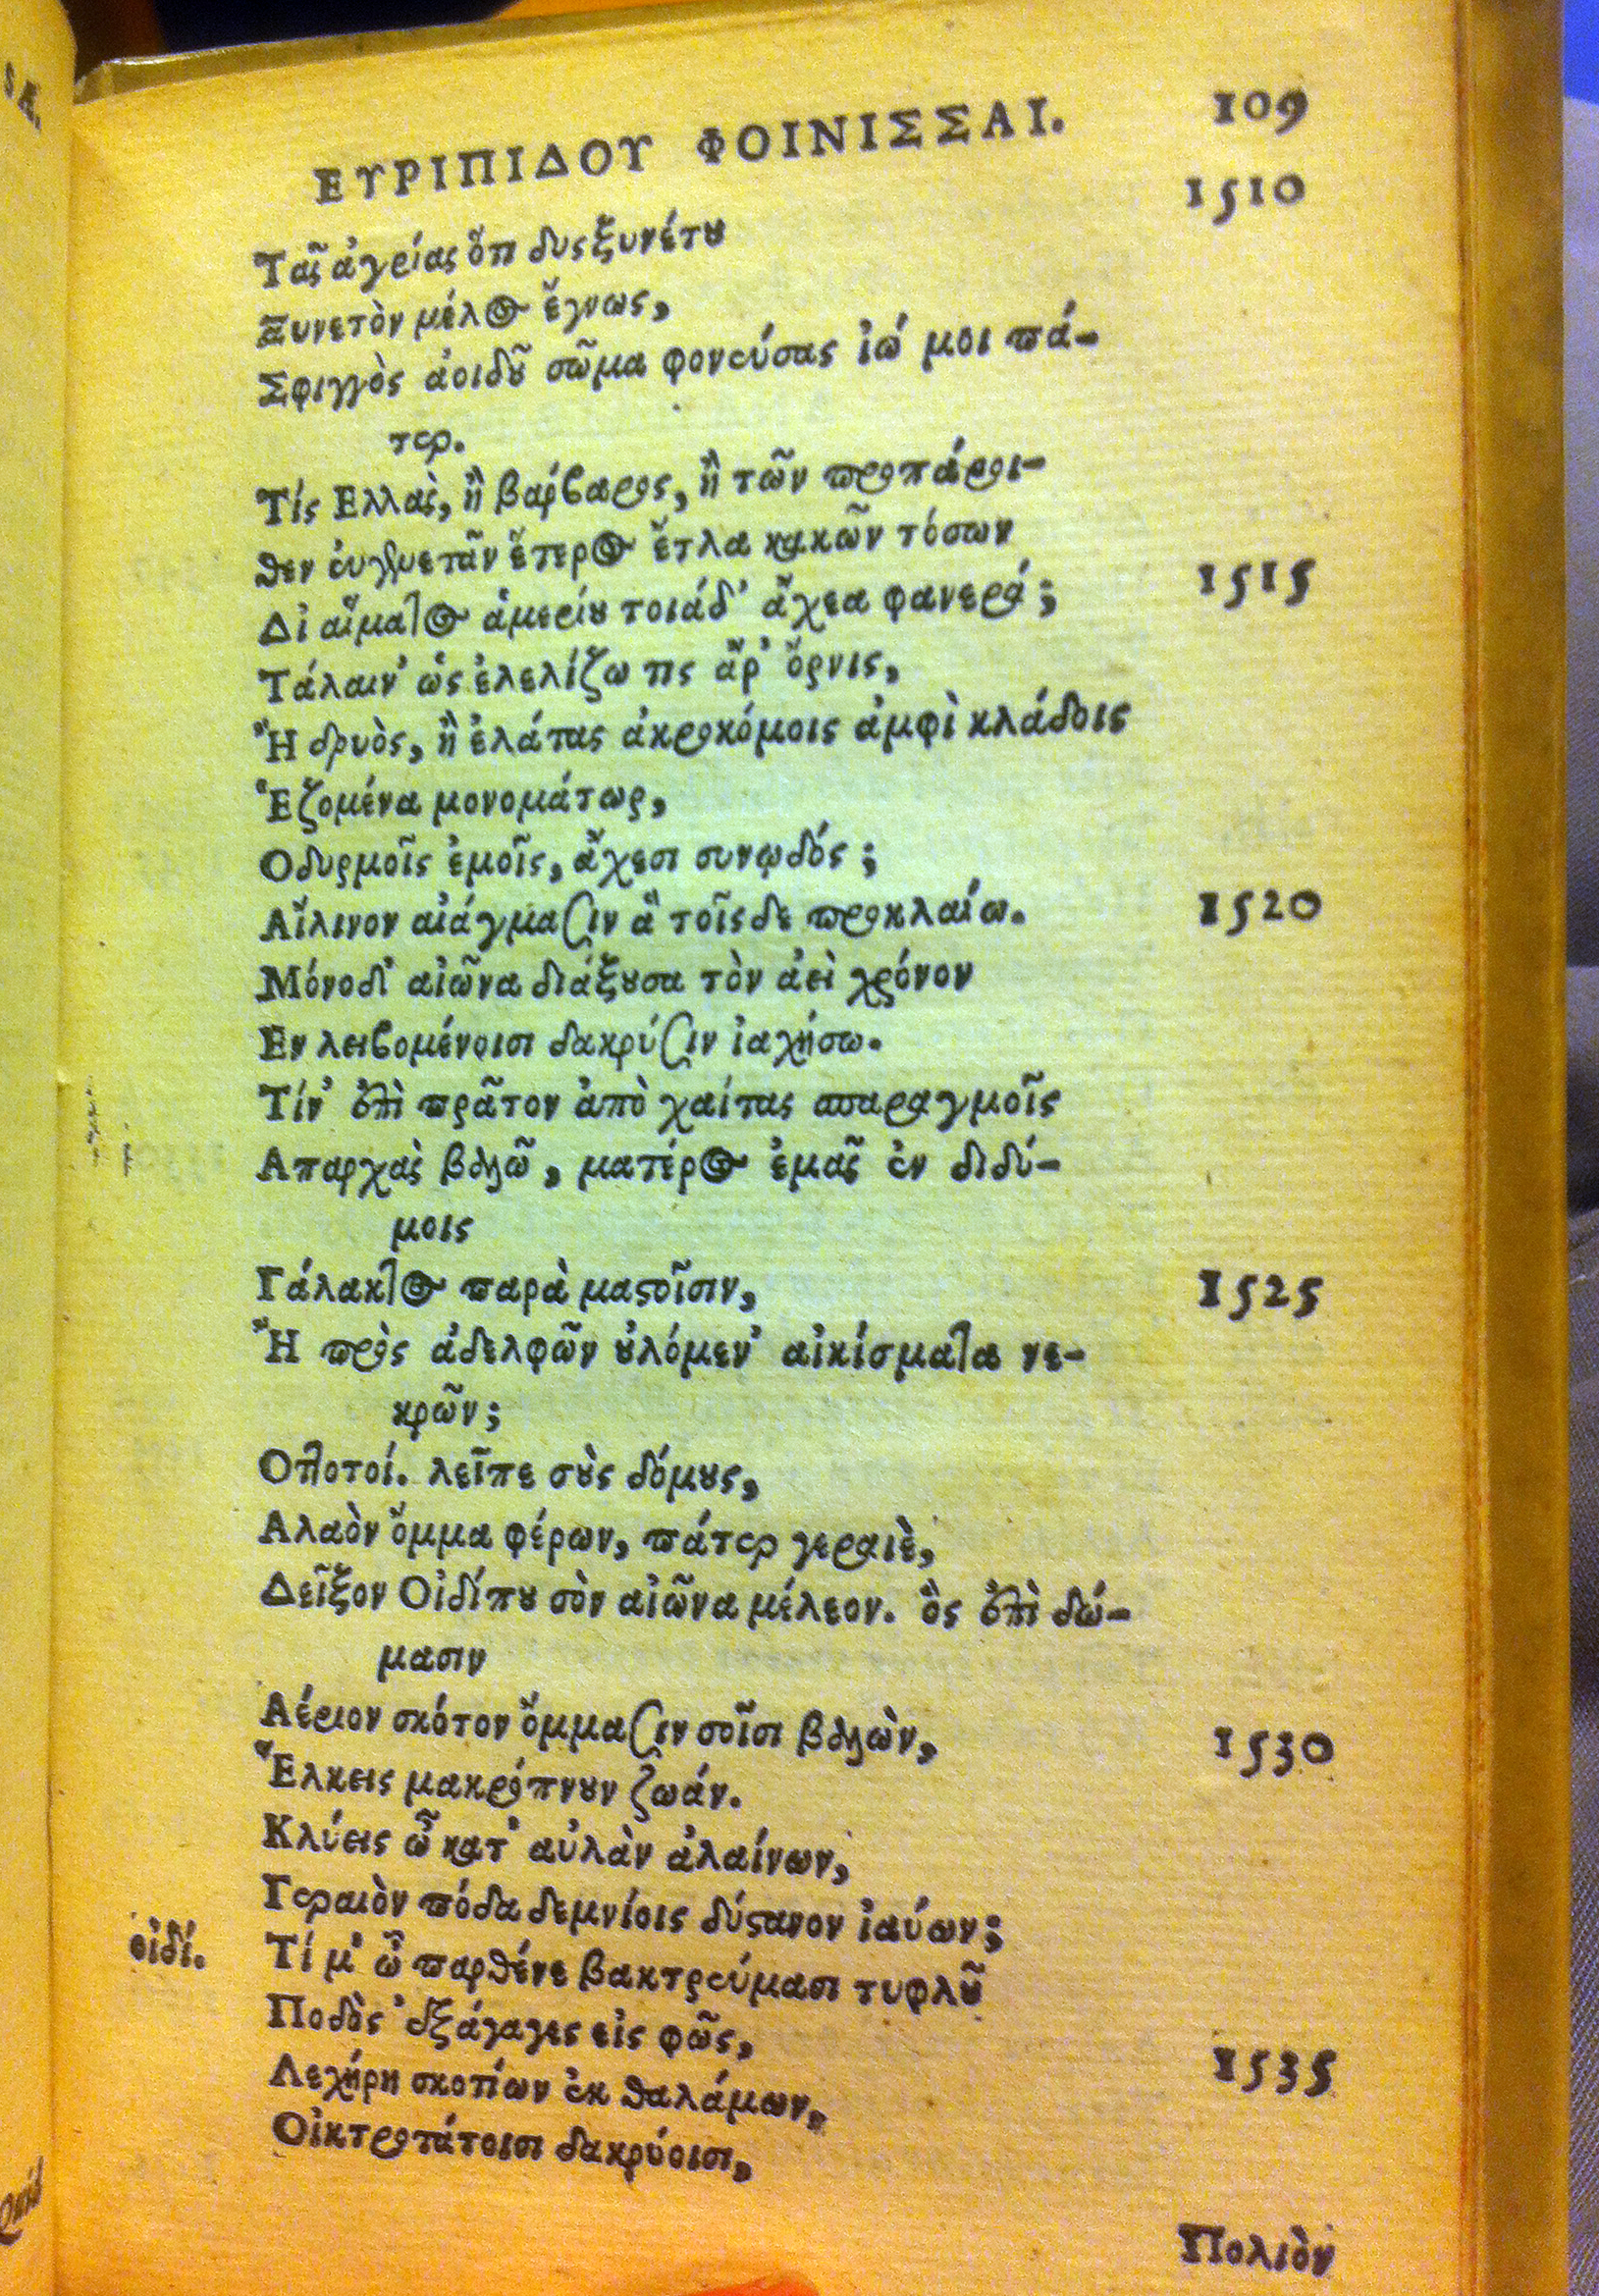 SÆ.
ΕΥΡΙΠΙΔΟΥ ΦΟΙΝΙΣΣΑΙ. 109
Τᾶς ἀγρίας ὅτι δυςξυνέτου 1510
Ξυνετὸν μέλος ἔγνως,
Σφιγγὸς ἀοιδοῦ σῶμα φονεύσας ἰώ μοι πά-
τερ.
Τίς Ελλὰς, ἢ βάρβαρος, ἢ τῶν προπάροι-
θεν εὐγενετᾶν ἕτερος ἔτλα κακῶν τόσων
Δι αἵματος ἁμερίου τοιάδ᾽ ἄχεα φανερά; 1515
Τάλαιν᾽ ὡς ἐλελίζω τις ἄρ᾽ ὄρνις,
Ἢ δρυὸς, ἢ ἐλάτας ἀκροκόμοις ἀμφὶ κλάδοις
Ἑζομένα μονομάτωρ,
Οδυρμοῖς ἐμοῖς, ἄχεσι συνῳδός;
Αἴλινον αἰάγμασιν ἃ τοῖςδε προκλαίω. 1520
Μόνοδι᾽ αἰῶνα διάξουσα τὸν ἀεὶ χρόνον
Εν λειβομένοισι δακρύσιν ἰαχήσω.
Τίν᾽ ἐπὶ πρᾶτον ἀπὸ χαίτας σπαραγμοῖς
Απαρχὰς βάλω, ματέρος ἐμᾶς ἐν διδύ-
μοις
Γάλακτος παρὰ μαστοῖσιν, 1525
Ἢ πρὸς ἀδελφῶν οὐλόμεν᾽ αἰκίσματα νε-
κρῶν;
Οττοτοί. λεῖπε σοὺς δόμους,
Αλαὸν ὄμμα φέρων, πάτερ γεραιὲ,
Δεῖξον Οἰδίπου σὸν αἰῶνα μέλεον. ὃς ἐπὶ δώ-
μασιν
Αέριον σκότον ὄμμασιν σοῖσι βαλὼν, 1530
Ἕλκεις μακρόπνουν ζωάν.
Κλύεις ὦ κατ᾽ αὐλὰν ἀλαίνων,
Γεραιὸν πόδα δεμνίοις δύστανον ἰαύων;
οἰδί. Τί μ᾽ ὦ παρθένε βακτρεύμασι τυφλοῦ
Ποδὸς ἐξάγαγες εἰς φῶς, 1535
Λεχήρη σκοτίων ἐκ θαλάμων,
Οἰκτροτάτοισι δακρύοισι,
Πολιὸν